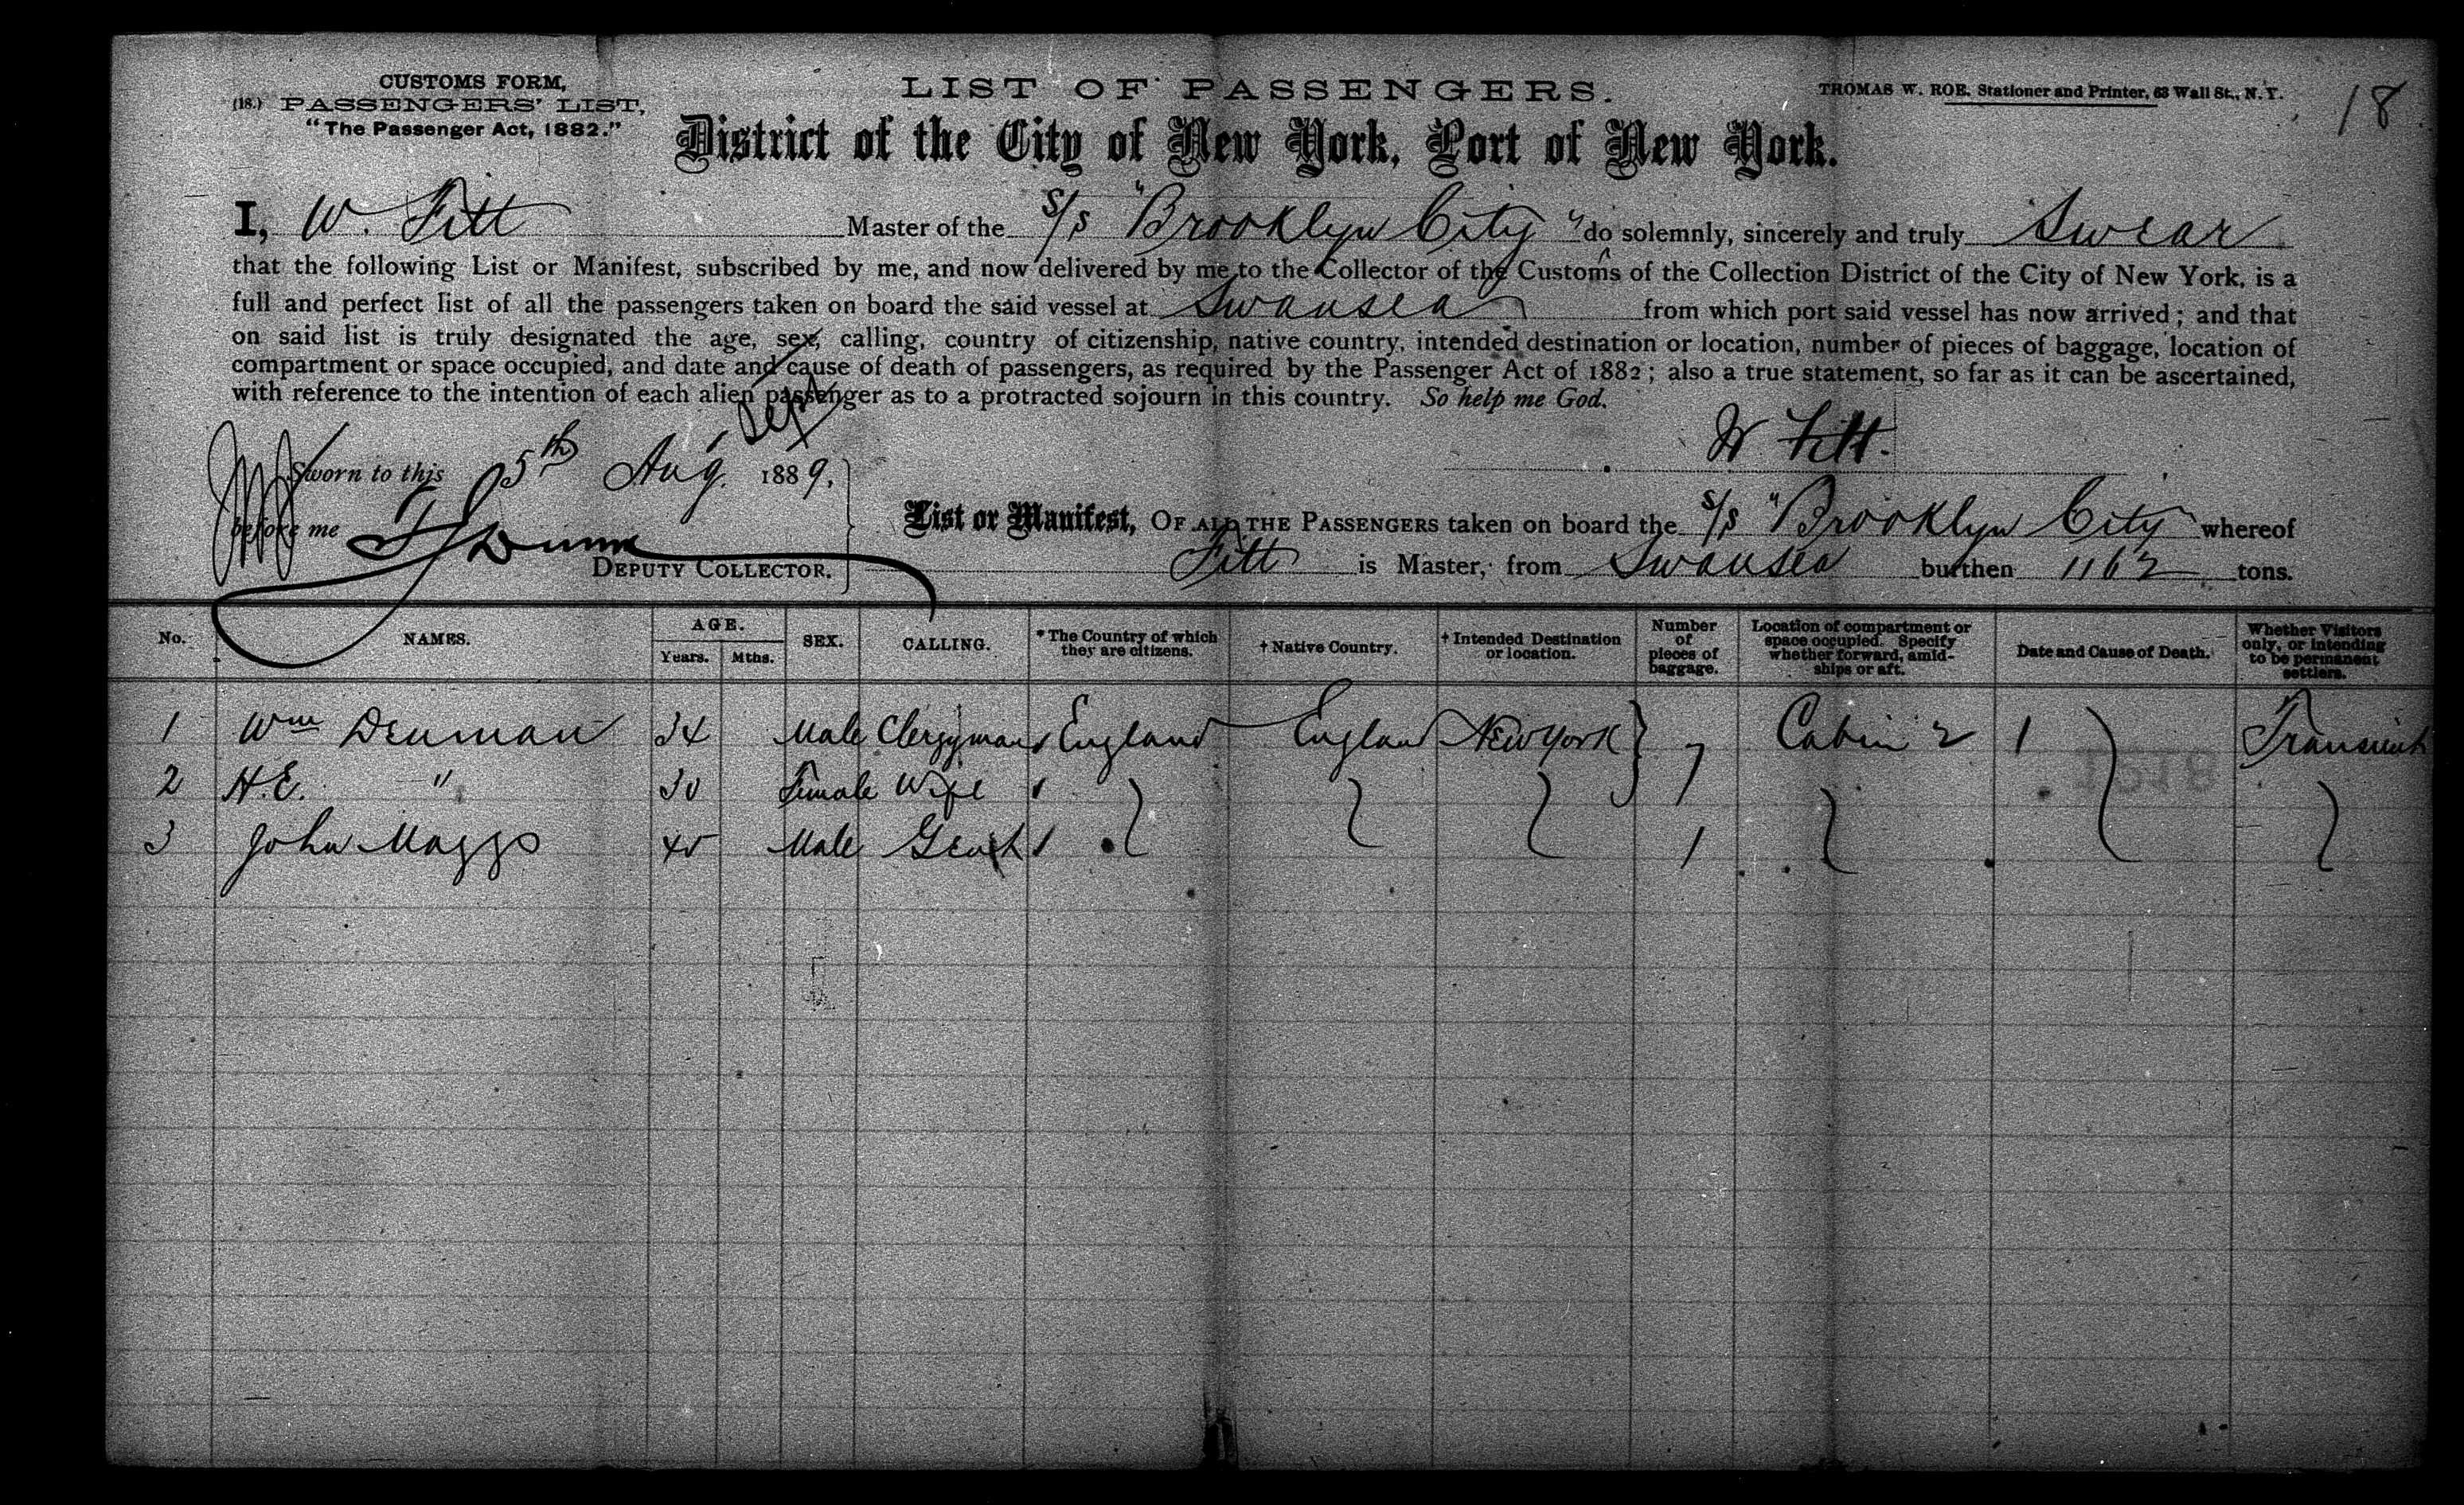 CUSTOMS FORM,
(18.) PASSENGERS' LIST,
"The Passenger Act, 1882."
LIST OF PASSENGERS.
THOMAS W. ROE, Stationer and Printer, 63 Wall St., N.Y.
18
District of the City of New York, Port of New York.
I, W. Fitt Master of the S/S "Brooklyn City" do solemnly, sincerely and truly Swear
that the following List or Manifest, subscribed by me, and now delivered by me to the Collector of the Customs of the Collection District of the City of New York, is a
full and perfect list of all the passengers taken on board the said vessel at Swansea from which port said vessel has now arrived; and that
on said list is truly designated the age, sex, calling, country of citizenship, native country, intended destination or location, number of pieces of baggage, location of
compartment or space occupied, and date and cause of death of passengers, as required by the Passenger Act of 1882; also a true statement, so far as it can be ascertained,
with reference to the intention of each alien passenger as to a protracted sojourn in this country. So help me God.
Sept
W Fitt.
Sworn to this 5th Aug. 1889,
before me
DEPUTY COLLECTOR.
List or Manifest, OF ALL THE PASSENGERS taken on board the S/S "Brooklyn City" whereof
Fitt is Master, from Swansea burthen 1162 tons.
No. NAMES. AGE. Years. Mths. SEX. CALLING. *The Country of which they are citizens. †Native Country. †Intended Destination or location. Number of pieces of baggage. Location of compartment or space occupied. Specify whether forward, amidships or aft. Date and Cause of Death. Whether Visitors only, or intending to be permanent settlers.
1 Wm Denman 34 Male Clergyman England England New York 7 Cabin 2 1 Transient
2 H.E. " 30 Female Wife
3 John Maggs 45 Male Gent 1